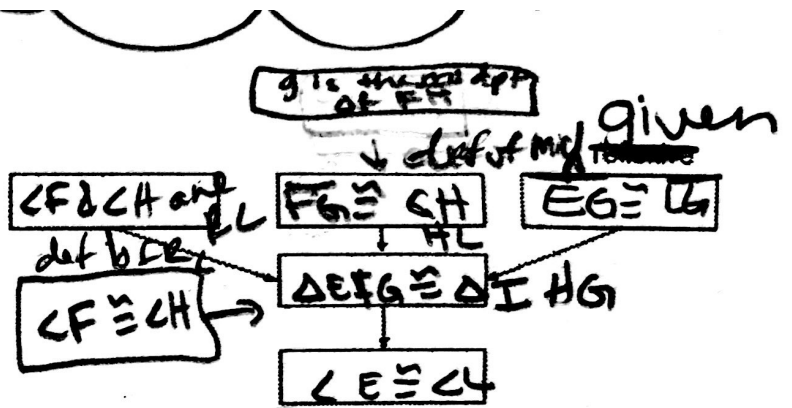 g is the midpt
of FH
↓ def of mid
given
<F & <H are RL
FG ≅ GH
EG ≅ IG
HL
<F ≅ <H →
ΔEFG ≅ Δ I HG
< E ≅ <L